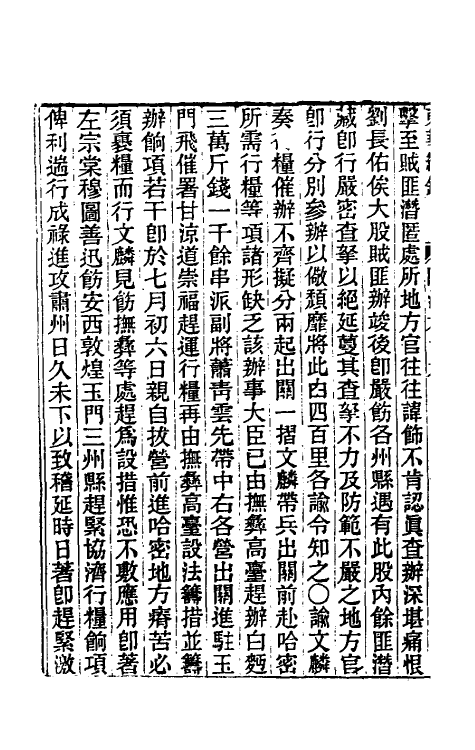 擊至賊匪潛匿處所地方官往往諱飾不肯認眞查辦深堪痛恨
劉長佑俟大股賊匪辦竣後卽嚴飭各州縣遇有此股內餘匪潛
藏卽行嚴密查拏以絕延蔓其查拏不力及防範不嚴之地方官
卽行分別參辦以儆頹靡將此由四百里各諭令知之〇諭文麟
奏行糧催辦不齊擬分兩起出關一摺文麟帶兵出關前赴哈密
所需行糧等項諸形缺乏該辦事大臣已由撫彝高臺趕辦白麪
三萬斤錢一千餘串派副將蕭靑雲先帶中右各營出關進駐玉
門飛催署甘涼道崇福趕運行糧再由撫彝高臺設法籌措並籌
辦餉項若干卽於七月初六日親自拔營前進哈密地方瘠苦必
須裹糧而行文麟見飭撫彝等處趕爲設措惟恐不敷應用卽著
左宗棠穆圖善迅飭安西敦煌玉門三州縣趕緊協濟行糧餉項
俾利遄行成祿進攻肅州日久未下以致稽延時日著卽趕緊激